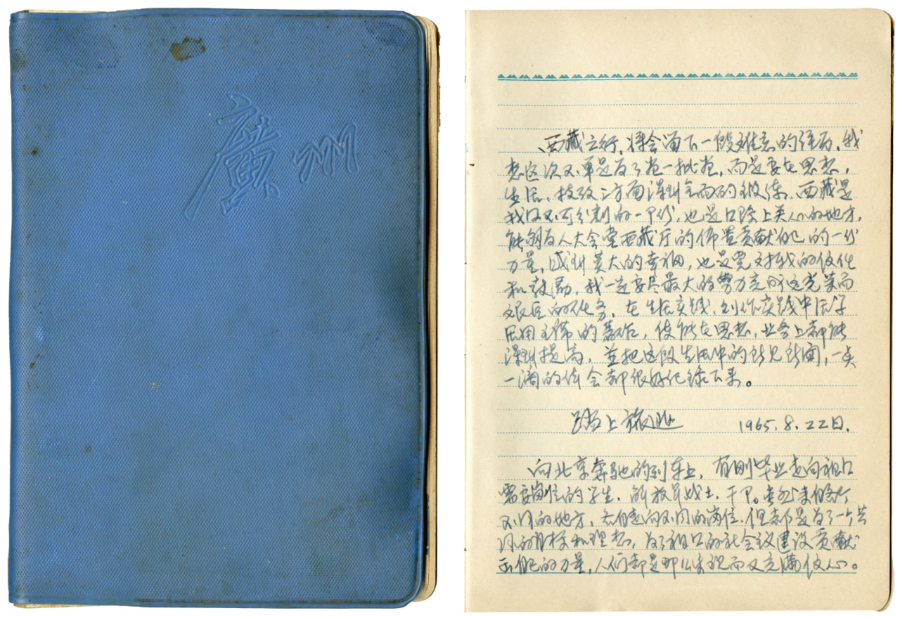 廣州
西藏之行，将会留下一段难忘的往历，我
想这次不单是为了卷一批卷，而是要在思想，
生活，技改三方面得到全面的锻炼。西藏是
我国不可分割的一部份，也是口路上关心的地方，
能够为人大会堂西藏厅的佈置贡献自己的一份
力量，感到莫大的幸福，也是党对我的信任
和鼓励。我一定要尽最大的努力完成这光荣而
艰巨的任务。在生活实践，工作实践中活学
活用主席的著作，使能在思想，业务上都能
得到提高，並把这段生活中的所见所闻，一点
一滴的体会都很好纪录下来。
踏上旅途 1965.8.22日.
向北京奔驰的列车上，有刚毕业走向祖国
需要岗位的学生，解放军战士，干部。
不同的地方，走向不同的岗位，但都是为了一个共
同的目标和理想，为了祖国的社会主义建设贡献
自己的力量，人们都是那么乐观而又充满信心。